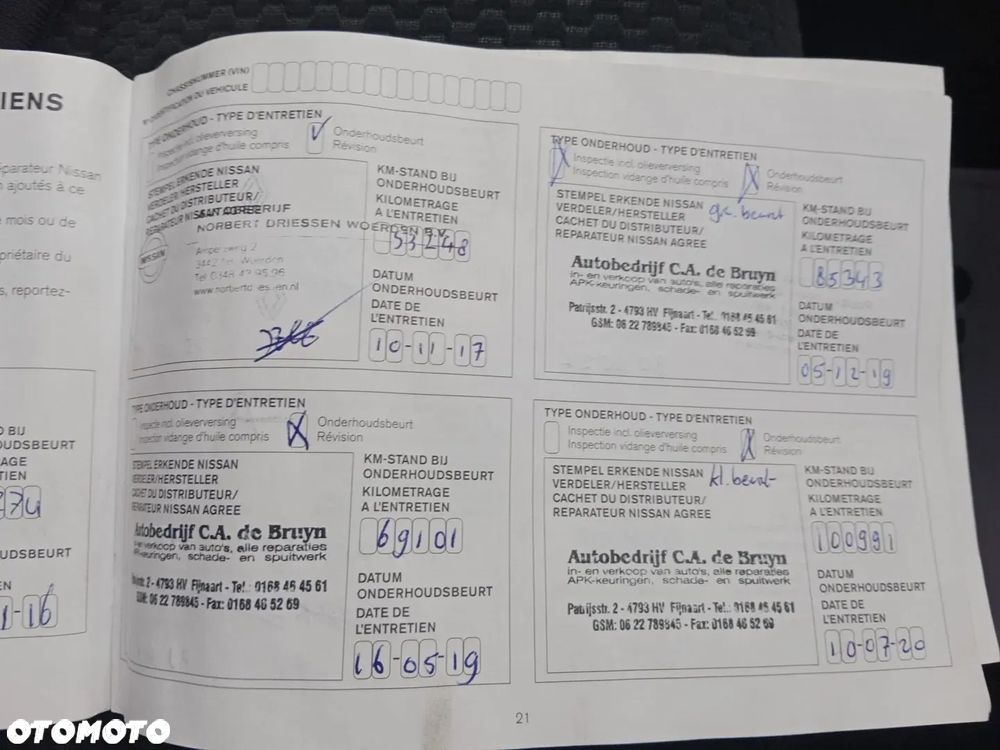 IENS
éparateur Nissan
n ajoutés à ce
e mois ou de
priétaire du
s, reportez-
D BIJ
OUDSBEURT
AGE
ETIEN
274
OUDSBEURT
EN
1-16
CHASSISNUMMER (VIN)
N° D'IDENTIFICATION DU VEHICULE
TYPE ONDERHOUD - TYPE D'ENTRETIEN
Inspectie incl. olieverversing
Inspection vidange d'huile compris
Onderhoudsbeurt
Révision
STEMPEL ERKENDE NISSAN
VERDELER/HERSTELLER
CACHET DU DISTRIBUTEUR/
REPARATEUR NISSAN AGREE
AUTOBEDRIJF
NORBERT DRIESSEN WOERDEN B.V.
NISSAN
2
3442 Woerden
Tel 0348 42 95 96
KM-STAND BIJ
ONDERHOUDSBEURT
KILOMETRAGE
A L'ENTRETIEN
53248
DATUM
ONDERHOUDSBEURT
DATE DE
L'ENTRETIEN
10-11-17
TYPE ONDERHOUD - TYPE D'ENTRETIEN
Inspectie incl. olieverversing
Inspection vidange d'huile compris
Onderhoudsbeurt
Révision
STEMPEL ERKENDE NISSAN
VERDELER/HERSTELLER
CACHET DU DISTRIBUTEUR/
REPARATEUR NISSAN AGREE
gr. beurt
Autobedrijf C.A. de Bruyn
in- en verkoop van auto's, alle reparaties
APK-keuringen, schade- en spuitwerk
Patrijsstr. 2 - 4793 HV Fijnaart - Tel.: 0168 46 45 61
GSM: 06 22 789845 - Fax: 0168 46 52 69
KM-STAND BIJ
ONDERHOUDSBEURT
KILOMETRAGE
A L'ENTRETIEN
85343
DATUM
ONDERHOUDSBEURT
DATE DE
L'ENTRETIEN
05-12-19
TYPE ONDERHOUD - TYPE D'ENTRETIEN
Inspectie incl. olieverversing
Inspection vidange d'huile compris
Onderhoudsbeurt
Révision
STEMPEL ERKENDE NISSAN
VERDELER/HERSTELLER
CACHET DU DISTRIBUTEUR/
REPARATEUR NISSAN AGREE
Autobedrijf C.A. de Bruyn
in- en verkoop van auto's, alle reparaties
APK-keuringen, schade- en spuitwerk
Patrijsstr. 2 - 4793 HV Fijnaart - Tel.: 0168 46 45 61
GSM: 06 22 789845 - Fax: 0168 46 52 69
KM-STAND BIJ
ONDERHOUDSBEURT
KILOMETRAGE
A L'ENTRETIEN
69101
DATUM
ONDERHOUDSBEURT
DATE DE
L'ENTRETIEN
16-05-19
TYPE ONDERHOUD - TYPE D'ENTRETIEN
Inspectie incl. olieverversing
Inspection vidange d'huile compris
Onderhoudsbeurt
Révision
STEMPEL ERKENDE NISSAN
VERDELER/HERSTELLER
CACHET DU DISTRIBUTEUR/
REPARATEUR NISSAN AGREE
kl. beurt
Autobedrijf C.A. de Bruyn
in- en verkoop van auto's, alle reparaties
APK-keuringen, schade- en spuitwerk
Patrijsstr. 2 - 4793 HV Fijnaart - Tel.: 0168 46 45 61
GSM: 06 22 789845 - Fax: 0168 46 52 69
KM-STAND BIJ
ONDERHOUDSBEURT
KILOMETRAGE
A L'ENTRETIEN
100991
DATUM
ONDERHOUDSBEURT
DATE DE
L'ENTRETIEN
10-07-20
21
OTOMOTO